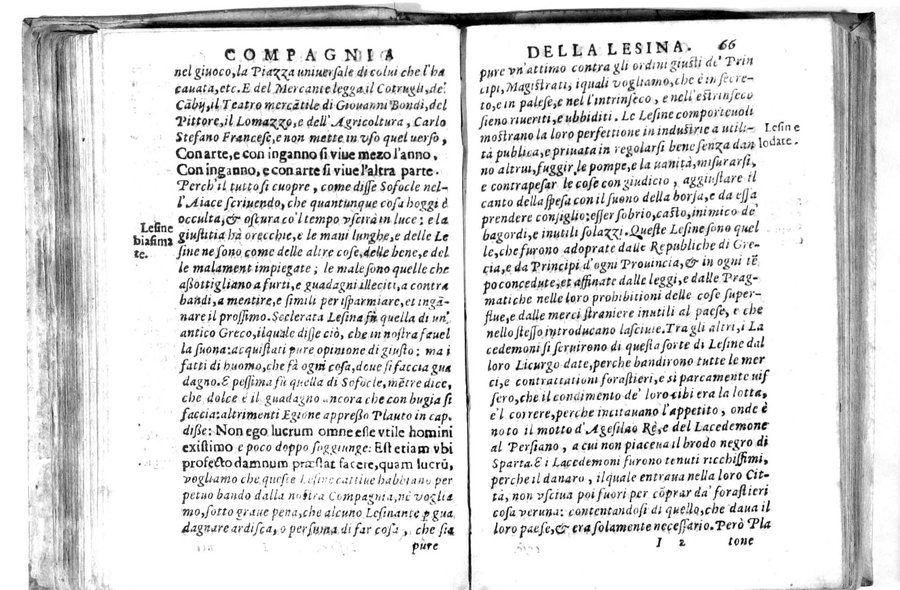 COMPAGNIA
nel giuoco, la Piazza uniuersale di colui che l'ha
cauata, etc. E del Mercante legga il Cotrugli, de'
Cābij, il Teatro mercātile di Giouanni Bondi, del
Pittore, il Lomazzo, e dell'Agricoltura, Carlo
Stefano Francese, e non mette in vso quel uerso,
Con arte, e con inganno si viue mezo l'anno,
Con inganno, e con arte si viue l'altra parte.
Perch'il tutto si cuopre, come disse Sofocle nel-
l'Aiace scriuendo, che quantunque cosa hoggi è
occulta, & oscura co'l tempo vscirà in luce: e la
giustitia hà orecchie, e le mani lunghe, e delle Le
sine ne sono come delle altre cose, delle bene, e del
le malament impiegate; le male sono quelle che
assottigliano a furti, e guadagni illeciti, a contra
bandi, a mentire, e simili per isparmiare, et ingā-
nare il prossimo. Scelerata Lesina fù quella di un'
antico Greco, il quale disse ciò, che in nostra fauel
la suona: acquistati pure opinione di giusto: ma i
fatti di huomo, che fà ogni cosa, doue si faccia gua
dagno. E pessima fù quella di Sofocle, mētre dice,
che dolce è il guadagno ancora che con bugia si
faccia: altrimenti Egione appresso Plauto in cap.
disse: Non ego lucrum omne esse vtile homini
existimo e poco doppo soggiunge: Est etiam vbi
profecto damnum præstat facere, quam lucrū,
vogliamo che queste Lesine cattiue habbiano per
petuo bando dalla nostra Compagnia, nè voglia
mo, sotto graue pena, che alcuno Lesinante ꝑ gua
dagnare ardisca, o persuma di far cosa, che sia
pure
Lesine
biasima
te.
DELLA LESINA. 66
pure vn'attimo contra gli ordini giusti de' Prin
cipi, Magistrati, i quali vogliamo, che è in secre-
to, e in palese, e nel l'intrinseco, e nell'estrinseco
sieno riueriti, e ubbiditi. Le Lesine comporteuoli
mostrano la loro perfettione in industrie a utili-
tà publica, e priuata in regolarsi bene senza dan
no altrui, fuggir le pompe, e la uanità, misurarsi,
e contrapesar le cose con giudicio, aggiustare il
canto della spesa con il suono della borsa, e da essa
prendere consiglio: esser sobrio, casto, inimico de'
bagordi, e inutili solazzi. Queste Lesine sono quel
le, che furono adoprate dalle Republiche di Gre-
cia, e da Principi d'ogni Prouincia, & in ogni tē
po concedute, et affinate dalle leggi, e dalle Prag-
matiche nelle loro prohibitioni delle cose super-
flue, e dalle merci straniere inutili al paese, e che
nello stesso introducano lasciuie. Tra gli altri, i La
cedemoni si seruirono di questa sorte di Lesine dal
loro Licurgo date, perche bandirono tutte le mer
ci, e contrattationi forastieri, e sì parcamente uis
sero, che il condimento de' loro cibi era la lotta,
e'l correre, perche incitauano l'appetito, onde è
noto il motto d'Agesilao Rè, e del Lacedemone
al Persiano, a cui non piaceua il brodo negro di
Sparta. E i Lacedemoni furono tenuti ricchissimi,
perche il danaro, il quale entraua nella loro Cit-
tà, non vsciua poi fuori per cōprar da' forastieri
cosa veruna: contentandosi di quello, che daua il
loro paese, & era solamente necessario. Però Pla
I 2 tone
Lesine
lodate.